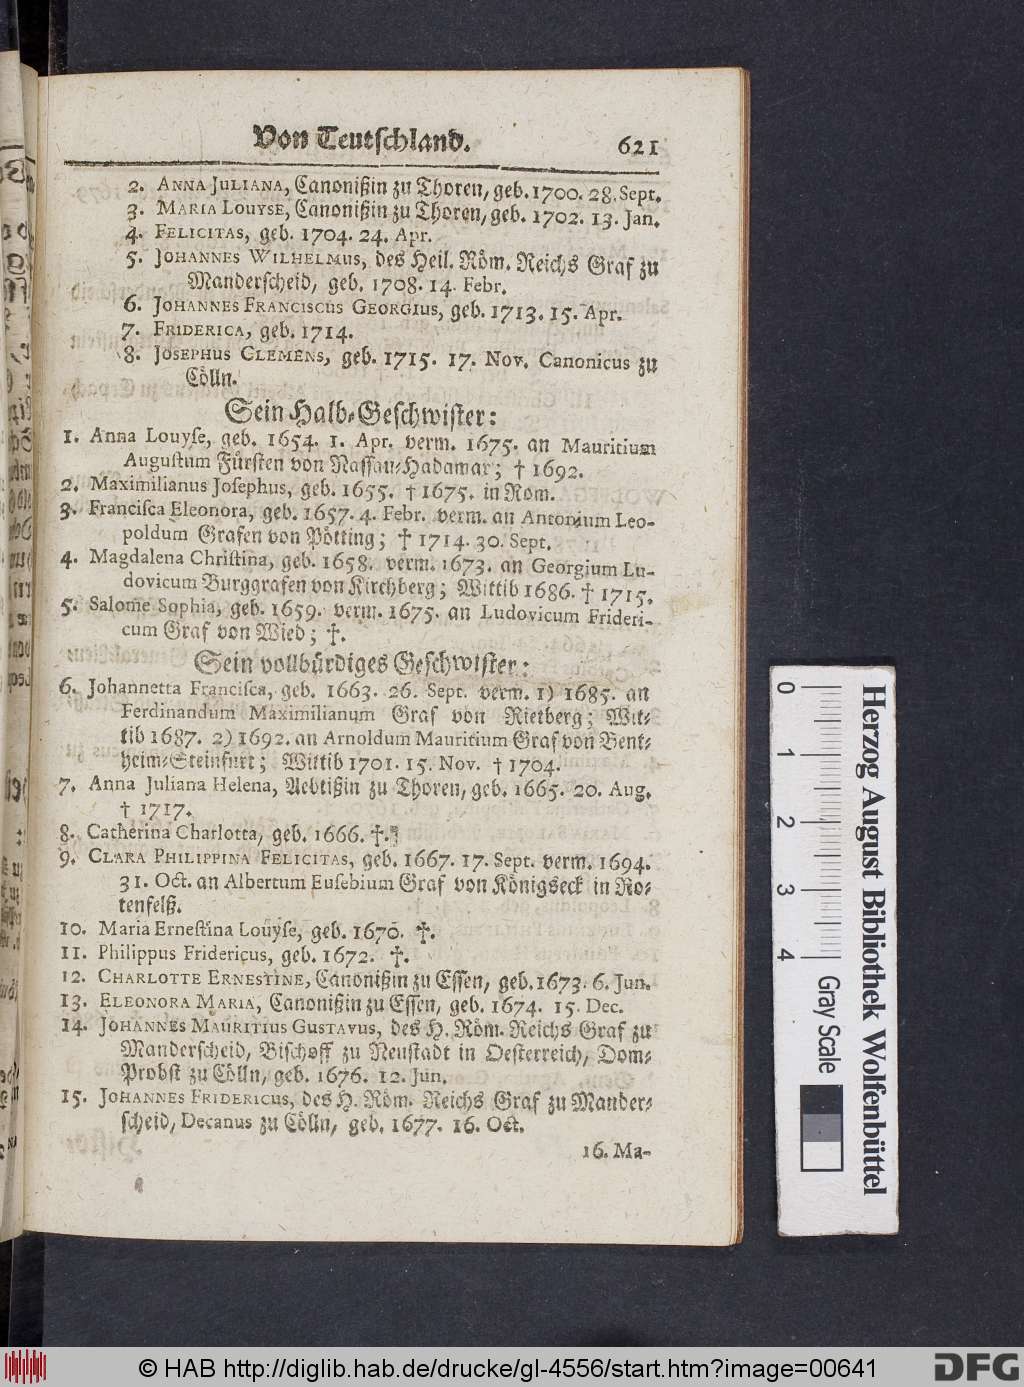 Von Teutschland. 621
2. ANNA JULIANA, Canonißin zu Thoren, geb. 1700. 28. Sept.
3. MARIA LOUYSE, Canonißin zu Thoren, geb. 1702. 13. Jan.
4. FELICITAS, geb. 1704. 24. Apr.
5. JOHANNES WILHELMUS, des Heil. Röm. Reichs Graf zu
Manderscheid, geb. 1708. 14. Febr.
6. JOHANNES FRANCISCUS GEORGIUS, geb. 1713. 15. Apr.
7. FRIDERICA, geb. 1714.
8. JOSEPHUS CLEMENS, geb. 1715. 17. Nov. Canonicus zu
Cölln.
Sein Halb-Geschwister:
1. Anna Louyse, geb. 1654. 1. Apr. verm. 1675. an Mauritium
Augustum Fürsten von Nassau-Hadamar; † 1692.
2. Maximilianus Josephus, geb. 1655. † 1675. in Rom.
3. Francisca Eleonora, geb. 1657. 4. Febr. verm. an Antonium Leo-
poldum Grafen von Pötting; † 1714. 30. Sept.
4. Magdalena Christina, geb. 1658. verm. 1673. an Georgium Lu-
dovicum Burggrafen von Kirchberg; Wittib 1686. † 1715.
5. Salome Sophia, geb. 1659. verm. 1675. an Ludovicum Frideri-
cum Graf von Wied; †.
Sein vollbürdiges Geschwister:
6. Johannetta Francisca, geb. 1663. 26. Sept. verm. 1) 1685. an
Ferdinandum Maximilianum Graf von Rietberg; Wit-
tib 1687. 2) 1692. an Arnoldum Mauritium Graf von Bent-
heim-Steinfurt; Wittib 1701. 15. Nov. † 1704.
7. Anna Juliana Helena, Aebtißin zu Thoren, geb. 1665. 20. Aug.
† 1717.
8. Catherina Charlotta, geb. 1666. †.
9. CLARA PHILIPPINA FELICITAS, geb. 1667. 17. Sept. verm. 1694.
31. Oct. an Albertum Eusebium Graf von Königseck in Ro-
tenfelß.
10. Maria Ernestina Louyse, geb. 1670. †.
11. Philippus Fridericus, geb. 1672. †.
12. CHARLOTTE ERNESTINE, Canonißin zu Essen, geb. 1673. 6. Jun.
13. ELEONORA MARIA, Canonißin zu Essen, geb. 1674. 15. Dec.
14. JOHANNES MAURITIUS GUSTAVUS, des H. Röm. Reichs Graf zu
Manderscheid, Bischoff zu Neustadt in Oesterreich, Dom-
Probst zu Cölln, geb. 1676. 12. Jun.
15. JOHANNES FRIDERICUS, des H. Röm. Reichs Graf zu Mander-
scheid, Decanus zu Cölln, geb. 1677. 16. Oct.
16. Ma-
0 1 2 3 4 Gray Scale
Herzog August Bibliothek Wolfenbüttel
© HAB http://diglib.hab.de/drucke/gl-4556/start.htm?image=00641
DFG